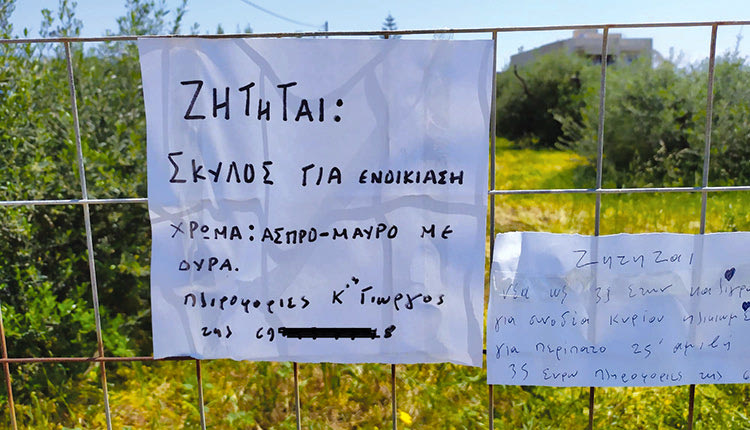 ΖΗΤΗΤΑΙ:
ΣΚΥΛΟΣ ΓΙΑ ΕΝΟΙΚΙΑΣΗ
ΧΡΩΜΑ: ΑΣΠΡΟ-ΜΑΥΡΟ ΜΕ
ΟΥΡΑ.
Πλιροφοριες Κ° Γιωργος
της 69 8
Ζητηται
για συνοδία κυρίου
για περίπατο
35 ευρω Πληροφορίες της